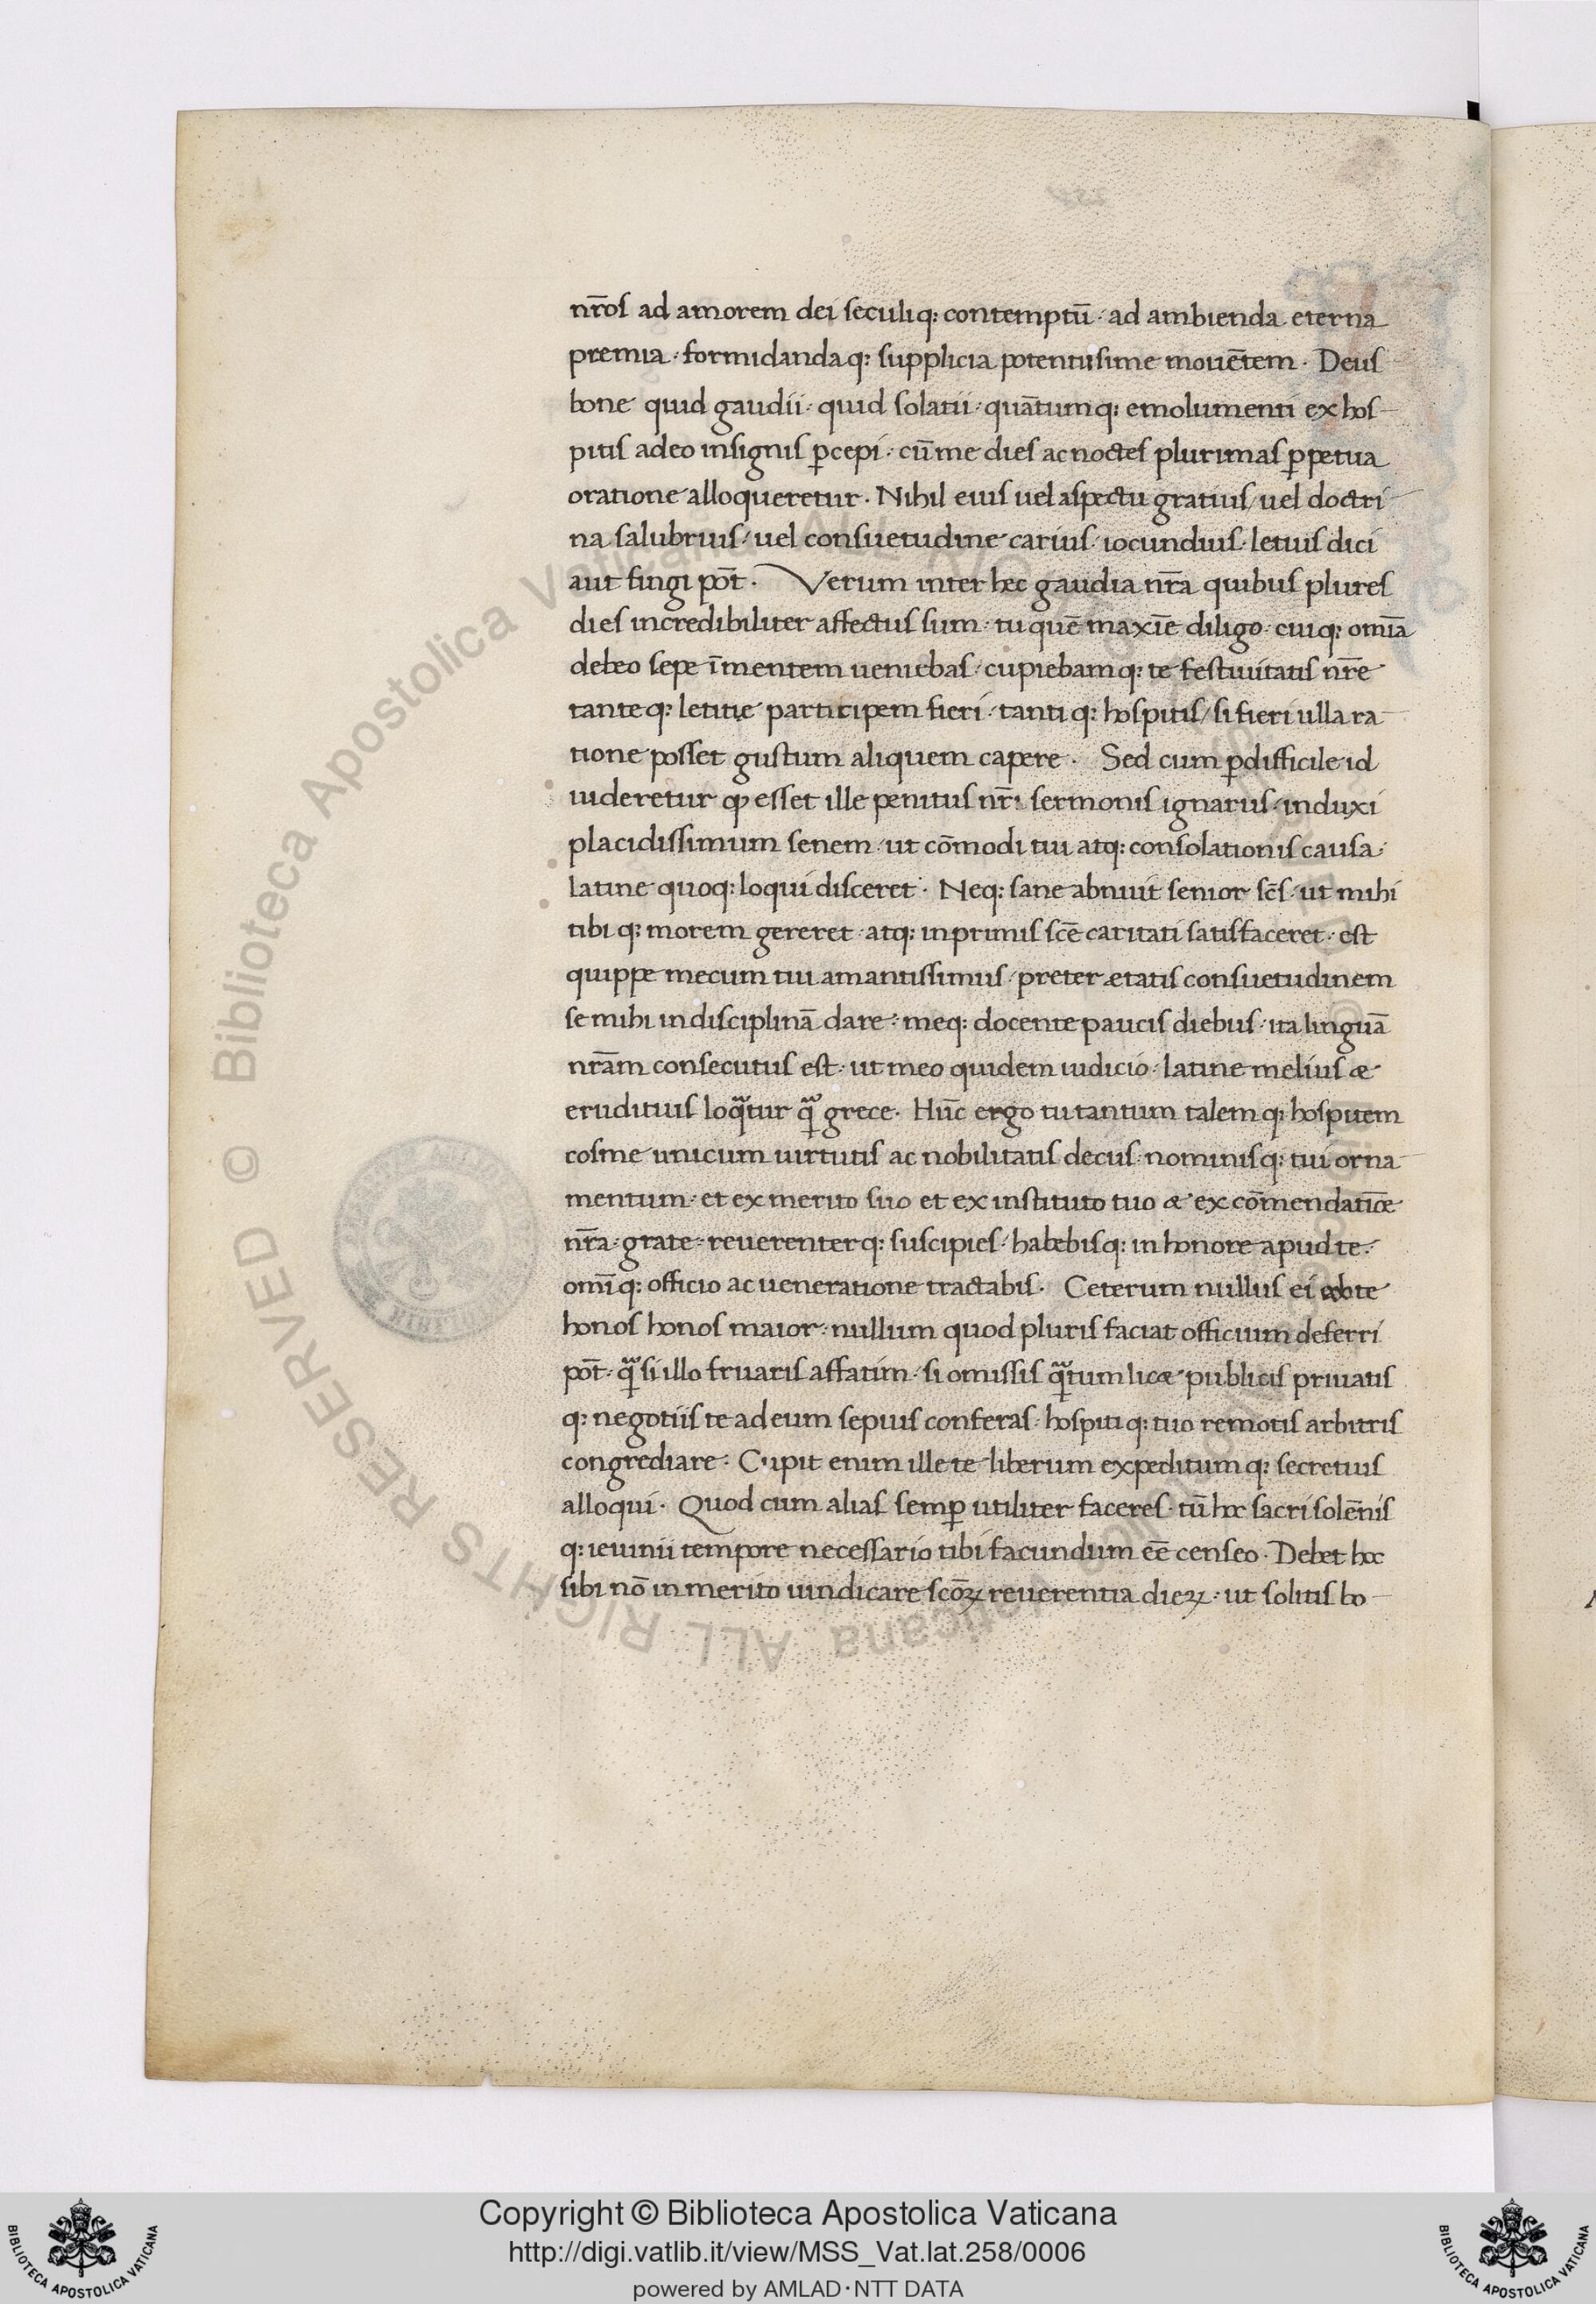 nr̄os ad amorem dei seculiq: contemptū· ad ambienda eterna
premia· formidandaq: supplicia potentissime mouētem· Deus
bone quid gaudii· quid solatii· quātumq: emolumenti ex hos-
pitis adeo insignis p̄cepi· cū me dies ac noctes plurimas p̄petua
oratione alloqueretur· Nihil eius uel aspectu gratius/ uel doctri-
na salubrius· uel consuetudine carius· iocundius· letius dici
aut fingi pōt· Verum inter hec gaudia nr̄a quibus plures
dies incredibiliter affectus sum· tu quē maxīe diligo· cuiq: omīa
debeo sepe ī mentem ueniebas· cupiebamq: te festiuitatis nr̄e
tanteq: letitię participem fieri· tantiq: hospitis/ si fieri ulla ra-
tione posset gustum aliquem capere· Sed cum p̄difficile id
uideretur qꝫ esset ille penitus nr̄i sermonis ignarus· induxi
placidissimum senem· ut cōmodi tui atq: consolationis causa·
latine quoq: loqui disceret· Neq: sane abnuit senior scs̄· ut mihi
tibiq: morem gereret· atq: inprimis scē caritati satisfaceret· est
quippe mecum tui amantissimus· preter ætatis consuetudinem
se mihi in disciplinā dare· meq: docente paucis diebus· ita linguā
nr̄am consecutus est· ut meo quidem iudicio· latine melius æ
eruditius loq̄tur q̄ grece· Hūc ergo tu tantum talemq: hospitem
cosme unicum uirtutis ac nobilitatis decus· nominisq: tui orna-
mentum· et ex merito suo et ex instituto tuo æ ex cōmendatiōe
nr̄a· grate· reuerenterq: suscipies· habebisq: in honore apud te·
omīq: officio ac ueneratione tractabis· Ceterum nullus ei abs te
honos honos maior· nullum quod pluris faciat officium deferri
pōt· q̄ si illo fruaris affatim· si omissis q̄tum licæ publicis priuatis
q: negotiis te ad eum sepius conferas· hospitiq: tuo remotis arbitris
congrediare· Cupit enim ille te liberum expeditumq: secretius
alloqui· Quod cum alias semp̄ utiliter faceres· tū hoc sacri solēnis
q: ieiunii tempore necessario tibi facundum ēē censeo· Debet hoc
sibi nō inmerito uindicare scōꝝ reuerentia dieꝝ· ut solitis bo-
© Biblioteca Apostolica Vaticana ALL RIGHTS RESERVED
Copyright © Biblioteca Apostolica Vaticana
http://digi.vatlib.it/view/MSS_Vat.lat.258/0006
powered by AMLAD·NTT DATA
BIBLIOTECA APOSTOLICA VATICANA
BIBLIOTECA APOSTOLICA VATICANA